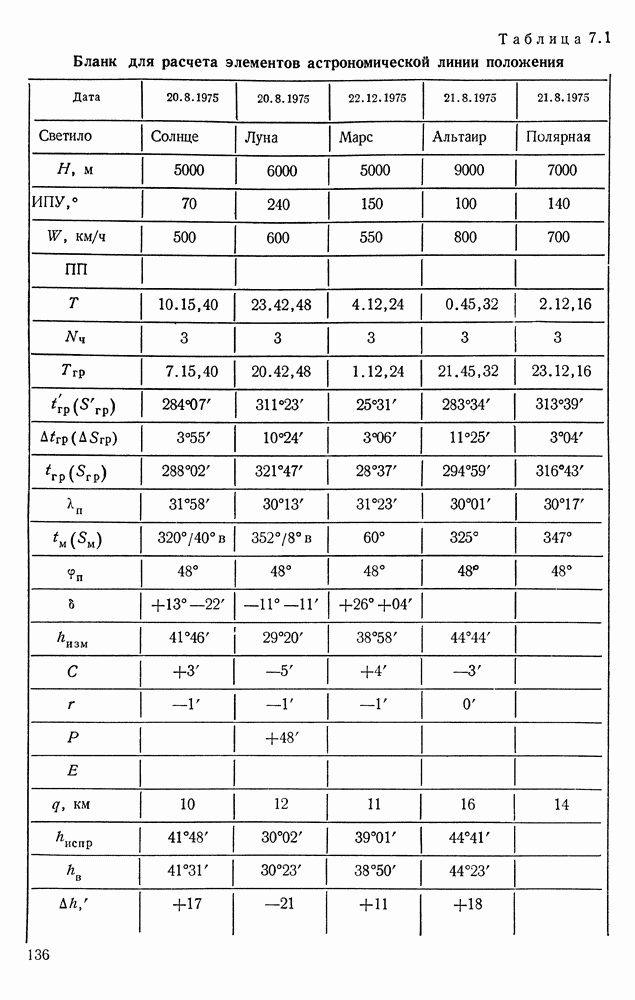 Таблица 7.1
Бланк для расчета элементов астрономической линии положения
Дата 20.8.1975 20.8.1975 22.12.1975 21.8.1975 21.8.1975
Светило Солнце Луна Марс Альтаир Полярная
H, м 5000 6000 5000 9000 7000
ИПУ,° 70 240 150 100 140
W, км/ч 500 600 550 800 700
ПП
T 10.15,40 23.42,48 4.12,24 0.45,32 2.12,16
Nч 3 3 3 3 3
Tгр 7.15,40 20.42,48 1.12,24 21.45,32 23.12,16
t′гр(S′гр) 284°07′ 311°23′ 25°31′ 283°34′ 313°39′
Δtгр(ΔSгр) 3°55′ 10°24′ 3°06′ 11°25′ 3°04′
tгр(Sгр) 288°02′ 321°47′ 28°37′ 294°59′ 316°43′
λп 31°58′ 30°13′ 31°23′ 30°01′ 30°17′
tм(Sм) 320°/40° в 352°/8° в 60° 325° 347°
φп 48° 48° 48° 48° 48°
δ +13°—22′ —11°—11′ +26°+04′
hизм 41°46′ 29°20′ 38°58′ 44°44′
C +3′ —5′ +4′ —3′
r —1′ —1′ —1′ 0′
P +48′
E
q, км 10 12 11 16 14
hиспр 41°48′ 30°02′ 39°01′ 44°41′
hв 41°31′ 30°23′ 38°50′ 44°23′
Δh,′ +17 —21 +11 +18
136